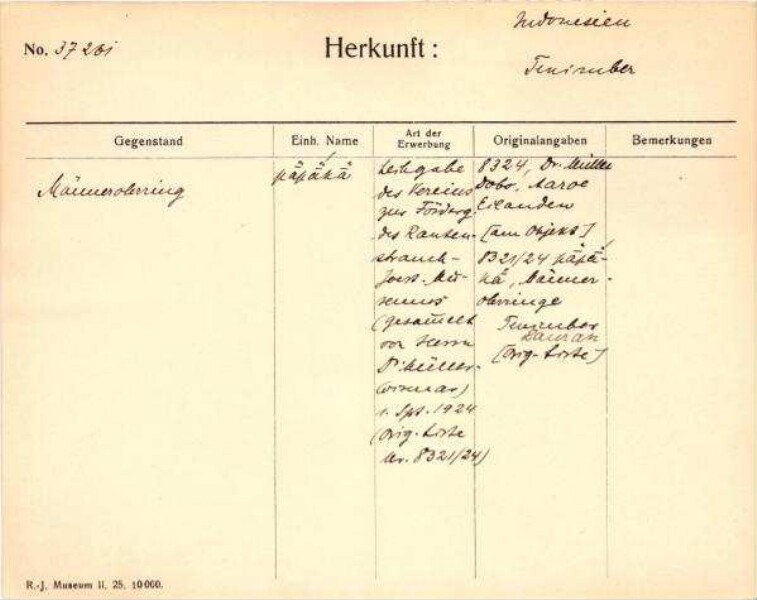 Indonesien
No. 37201
Herkunft:
Tenimber
Gegenstand
Einh. Name
Art der Erwerbung
Originalangaben
Bemerkungen
Männerohrring
päpäkä
Leihgabe
des Vereins
zur Förderg.
des Rauten-
strauch-
Joest-Mu-
seums
(gesammelt
von Herrn
Dr. Müller-
Wismar)
1. Spt. 1924
(Orig-Liste
Nr. 8321/24)
8324, Dr. Müller
Dobo, Aaroe
Eilanden
[am Objekt]
8321/24 päpä-
kä, Männer-
ohrringe
Tenimber
[Orig-Liste]
R.-J. Museum II. 25. 10 000.